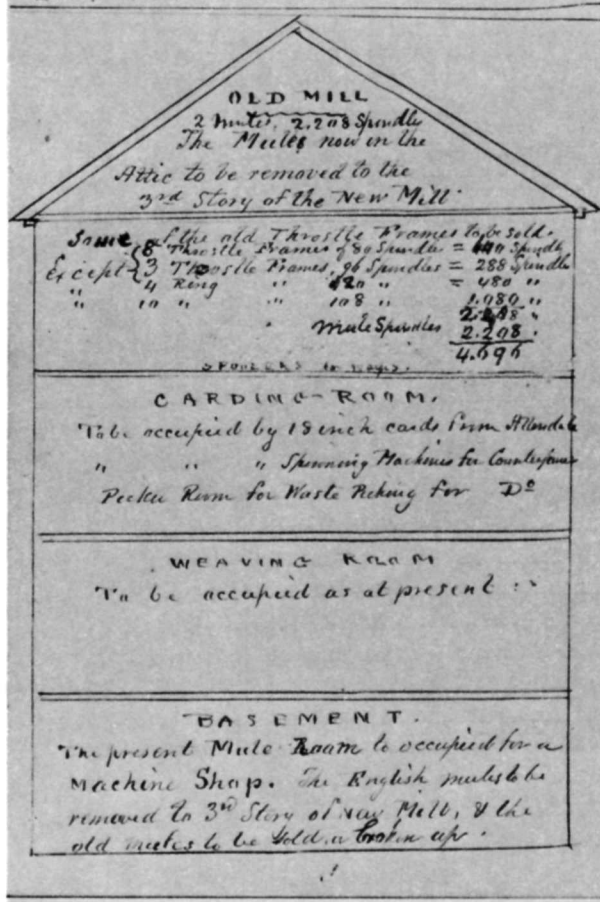 OLD MILL
2 Mules, 2.208 Spindles
The Mules now in the
Attic to be removed to the
3rd Story of the New Mill.
Some of the old Throstle Frames to be sold.
Except 8 Throstle Frames of 80 Spindles = 640 Spindls
3 Throstle Frames, 96 Spindles = 288 Spindls
" 4 Ring " 120 " = 480 "
" 10 " " 108 " 1.080 "
2.488 "
Mule Spindles 2.208 .
4.696
SPOOLERS
CARDING-ROOM.
To be occupied by 18 inch cards from Allendale
" " " Spinning Machines for
Picker Room for Waste Picking for Do
WEAVING ROOM
To be occupied as at present
BASEMENT.
The present Mule Room to occupied for a
Machine Shop. The English mules to be
removed to 3rd Story of New Mill, & the
old mules to be sold or broken up.